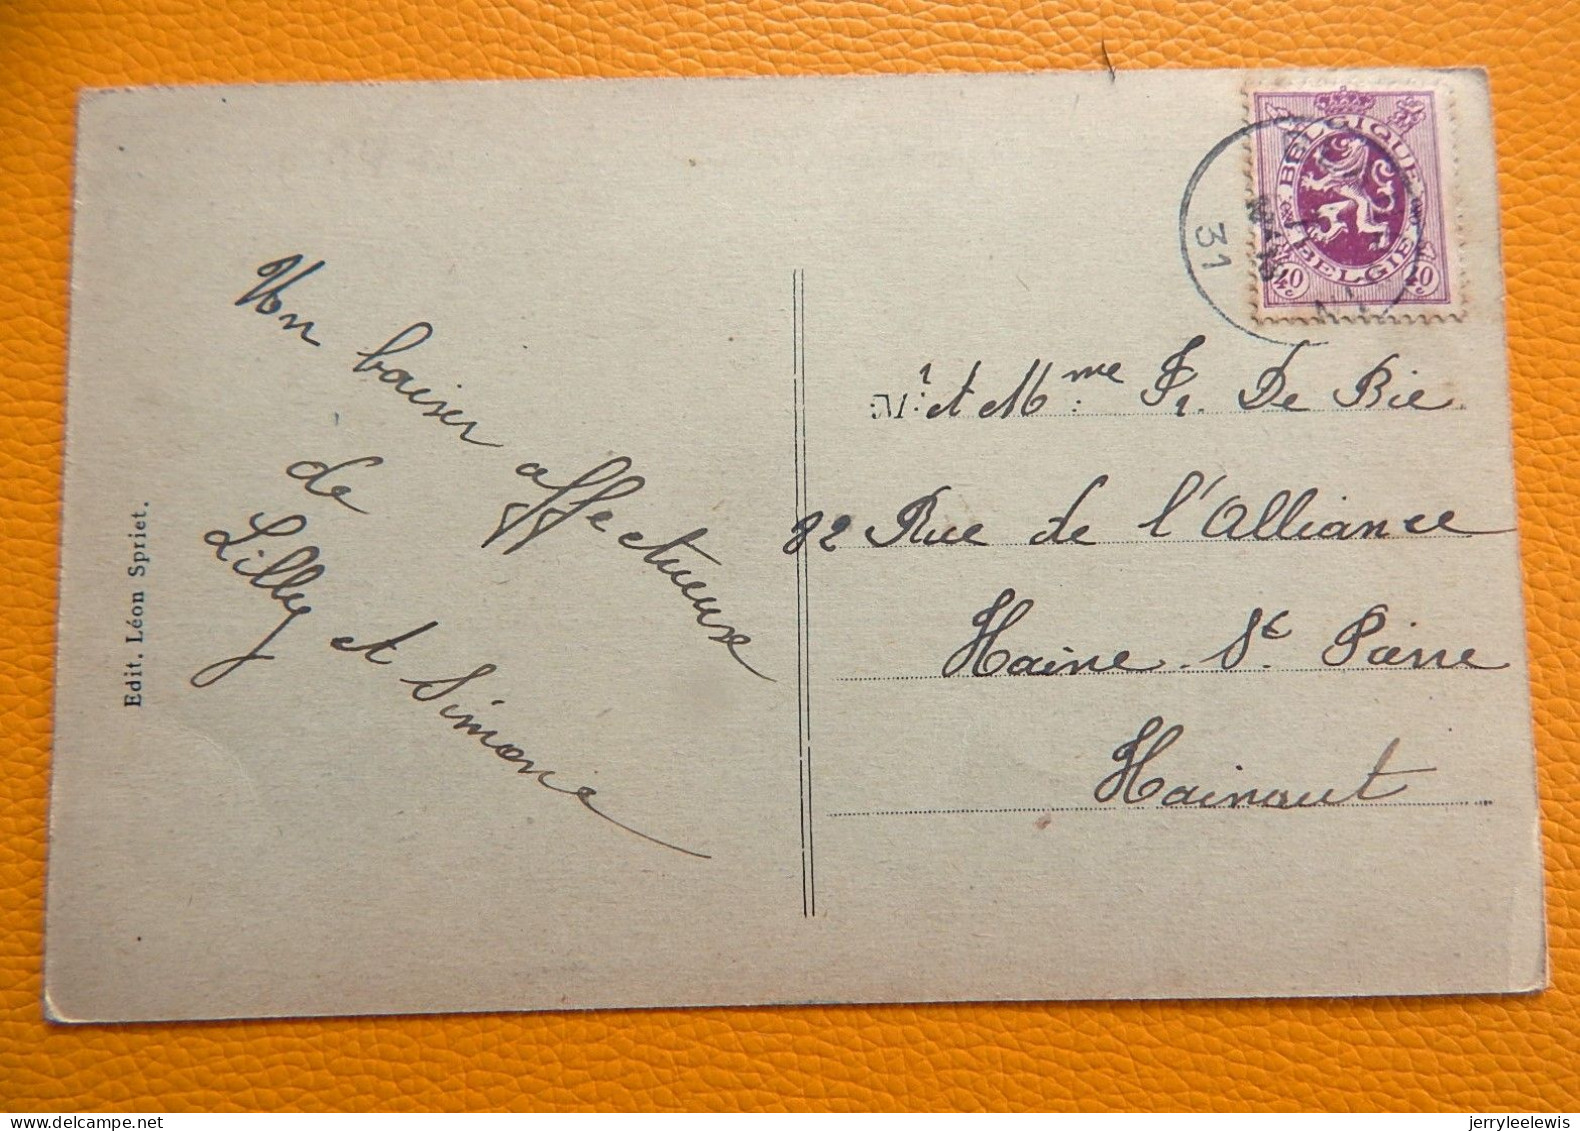 Un baiser affectueuse
de
Lilly et Simone
Edit. Léon Spriet.
BELGIQUE
BELGIE
40 c 40 c
31
Mr et Mme Fr. De Bie
82 Rue de l'Alliance
Haine St. Pierre
Hainaut
delcampe.net
jerryleelewis